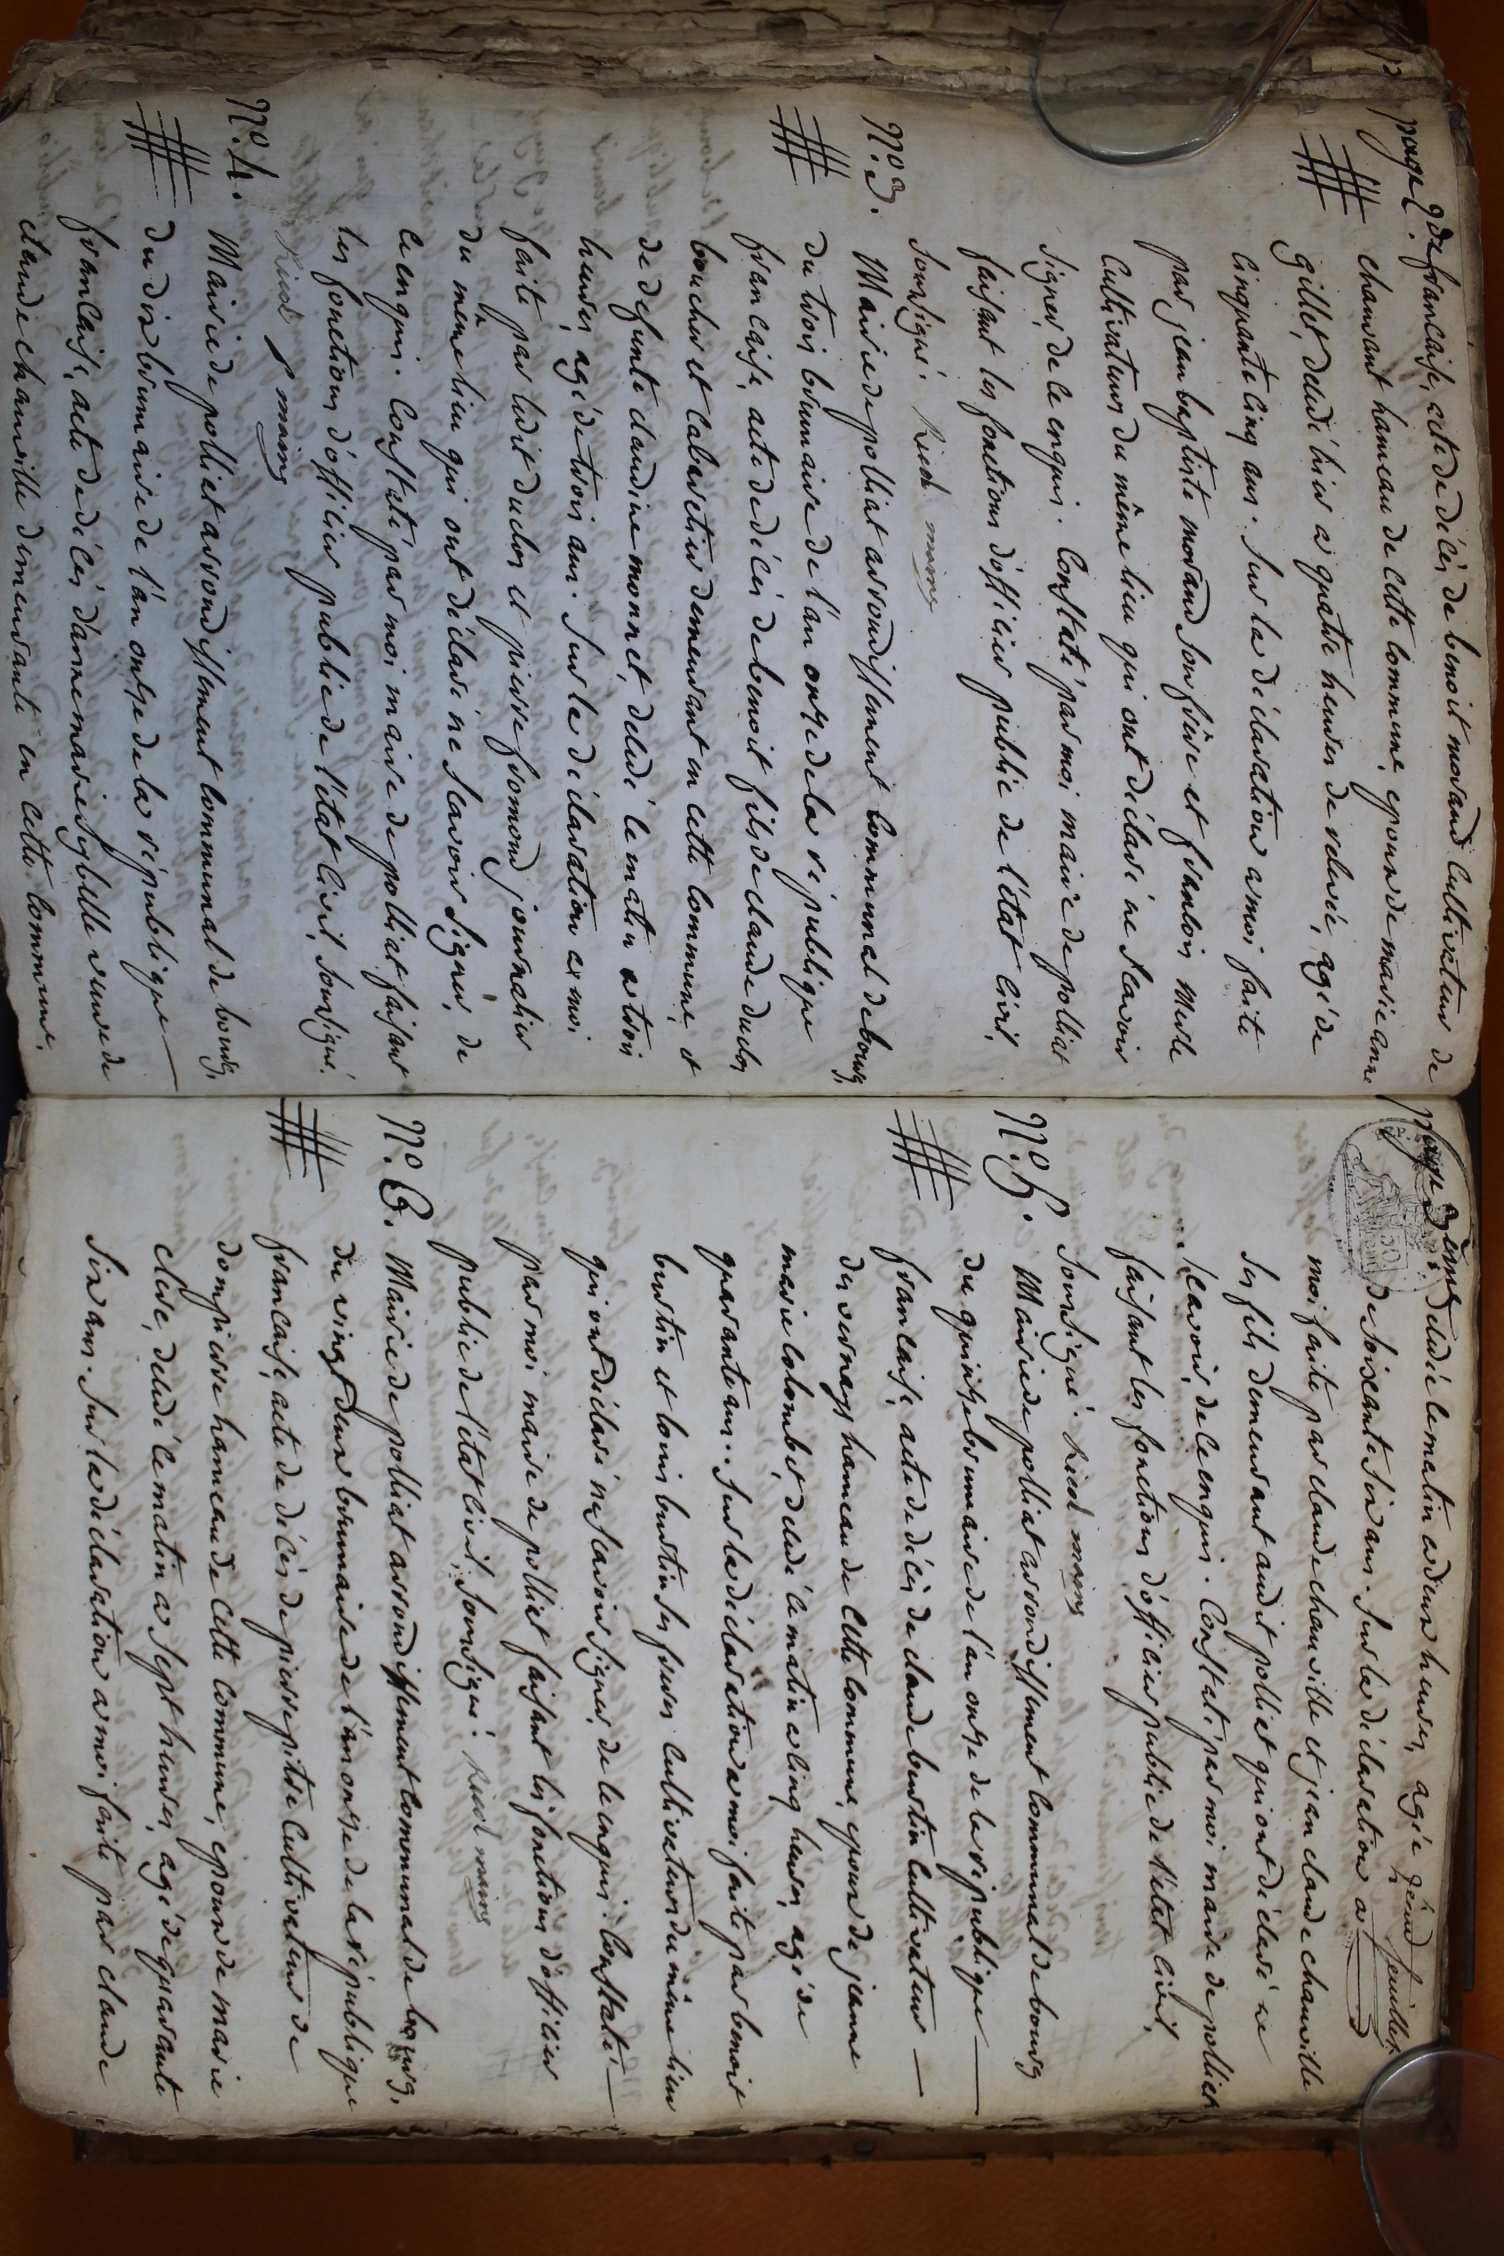 page 2de
francaise, acte de décès de benoit morand Cultivateur de
chamvant hameau de cette Commune, epoux de marie anne
gillet, deledé hier a quatre heures de relevée, agé de
Cinquante cinq ans. Sur la déclaration a moi faite
par jean baptiste morand son frère et francois Merle
Cultivateurs du même lieu qui ont déclaré ne scavoir
signer de ce enquis. Constaté par moi maire de polliat
faisant les fonctions d'officier public de l'état Civil,
Soussigné. Ricol maire
N.o 3. Mairie de polliat arrondissement Communal de bourg,
du trois brumaire de l'an onze de la république
francaise, acte de décès de benoit fils de claude duclos
boucher et Cabaretier demeurant en cette Commune, et
de defunte claudine monnet, deledé le matin a trois
heures, agé de trois ans. Sur la déclaration a moi
faite par ledit duclos et pierre fromond journalier
du même lieu qui ont déclaré ne scavoir signer, de
ce enquis. Constaté par moi maire de polliat faisant
les fonctions d'officier public de l'état Civil, soussigné.
Ricol maire
N.o 4. Mairie de polliat arrondissement Communal de bourg,
du dix brumaire de l'an onze de la république
francaise, acte de décès d'anne marie Sybelle veuve de
claude chanville demeurante en cette Commune,
page 3ème
2end feuillet
deledée le matin a deux heures, agée
de soixante six ans. Sur la déclaration a
moi faite par claude chanville et jean claude chanville
ses fils demeurant audit polliat qui ont déclaré ne
scavoir, de ce enquis. Constaté par moi maire de polliat
faisant les fonctions d'officier public de l'état Civil,
Soussigné. Ricol maire
N.o 5. Mairie de polliat arrondissement Communal de bourg
du quinze brumaire de l'an onze de la république
francaise, acte de décès de claude burtin Cultivateur
des vernays hameau de Cette Commune, epoux de jeanne
marie Colombet, deledé le matin a Cinq heures, agé de
quarante ans. Sur la déclaration a moi faite par benoit
burtin et louis burtin ses freres Cultivateurs du même lieu
qui ont déclaré ne scavoir signer, de ce enquis. Constaté
par moi maire de polliat faisant les fonctions d'officier
public de l'état Civil, soussigné. Ricol maire
N.o 6. Mairie de polliat arrondissement Communal de bourg,
du vingt deux brumaire de l'an onze de la république
francaise, acte de décès de pierre pitre Cultivateur de
dompierre hameau de Cette Commune, epoux de marie
clerc, deledé le matin a sept heures, agé de quarante
six ans. Sur la déclaration a moi faite par claude